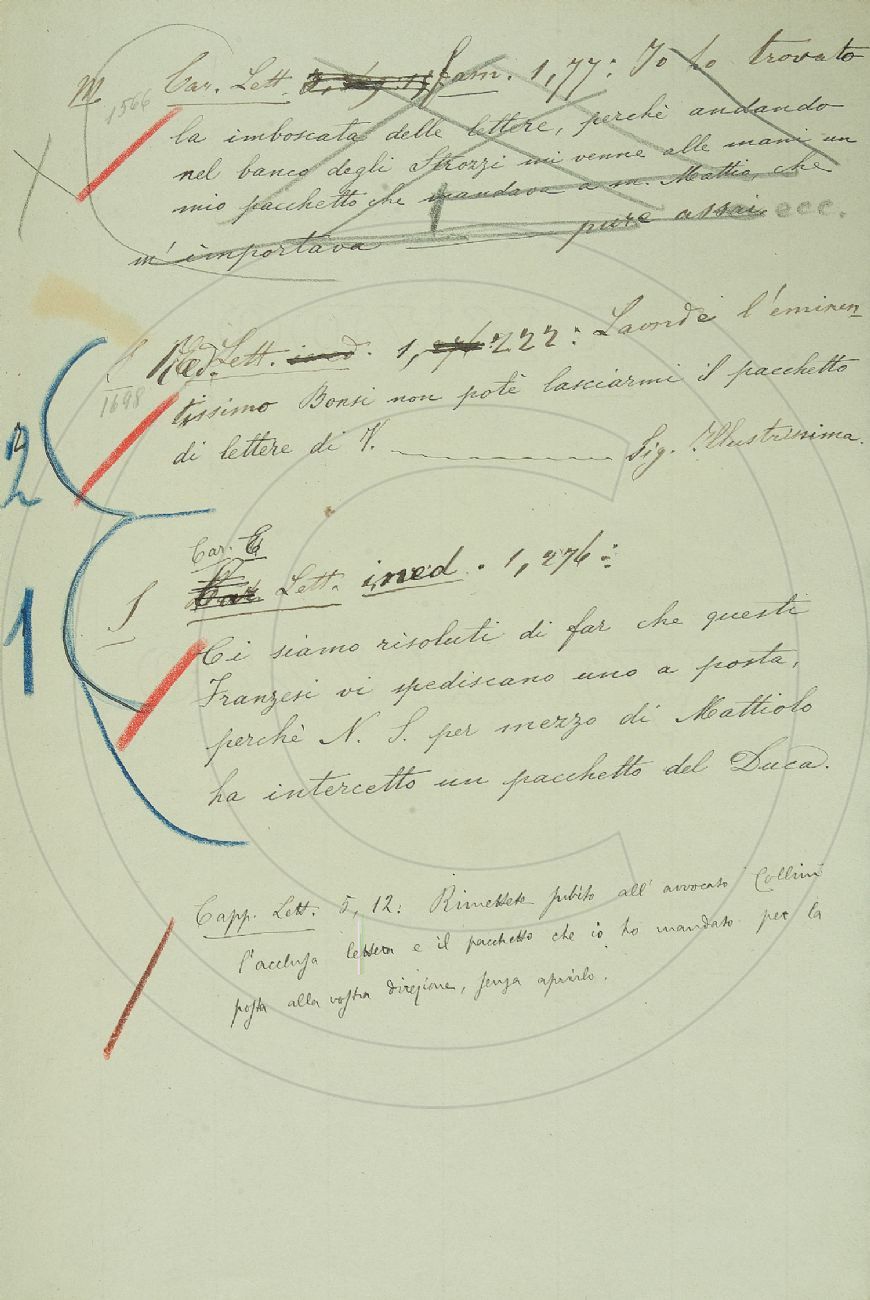 m 1566 Car. Lett. Fam. 1, 77: Io ho trovato
la imboscata delle lettere, perchè andando
nel banco degli Strozzi mi venne alle mani un
mio pacchetto che mandava a m. Mattio, che
m' importava pure assai ecc.
Red. Lett. ined. 1, 276 222: Laonde l'eminen
1698 tissimo Bonsi non potè lasciarmi il pacchetto
di lettere di V. Sig. Illustrissima.
2
Car. E
1 Car. Lett. ined. 1, 276:
Ci siamo risoluti di far che questi
Franzesi vi spediscano uno a posta,
perchè N. S. per mezzo di Mattiolo
ha intercetto un pacchetto del Duca.
Capp. Lett. 5, 12: Rimettete subito all' avvocato Collini
l'acclusa lettera e il pacchetto che io ho mandato per la
posta alla vostra direzione, senza aprirlo.